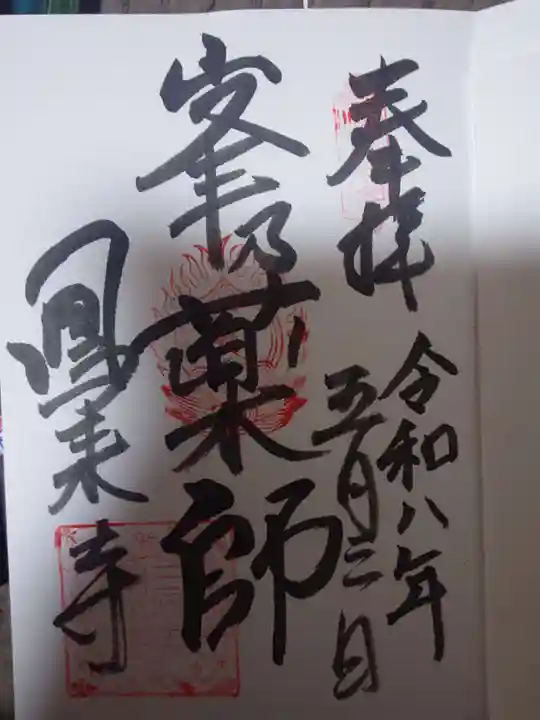 奉拝
令和八年
五月三日
峯乃薬師
鳳来寺